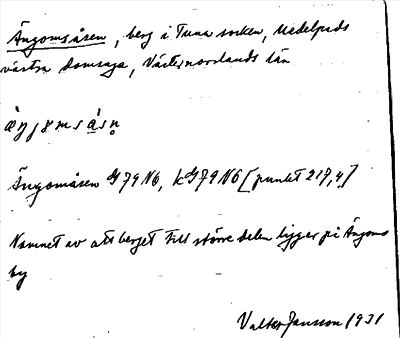 Ängomsåsen, berg i Tuna socken, Medelpads
västra domsaga, Västernorrlands län
Ängomåsen G79N6, kG79N6 [punkt 217,4]
Namnet av att berget till större delen ligger på Ängoms
by
Valter Jansson 1931